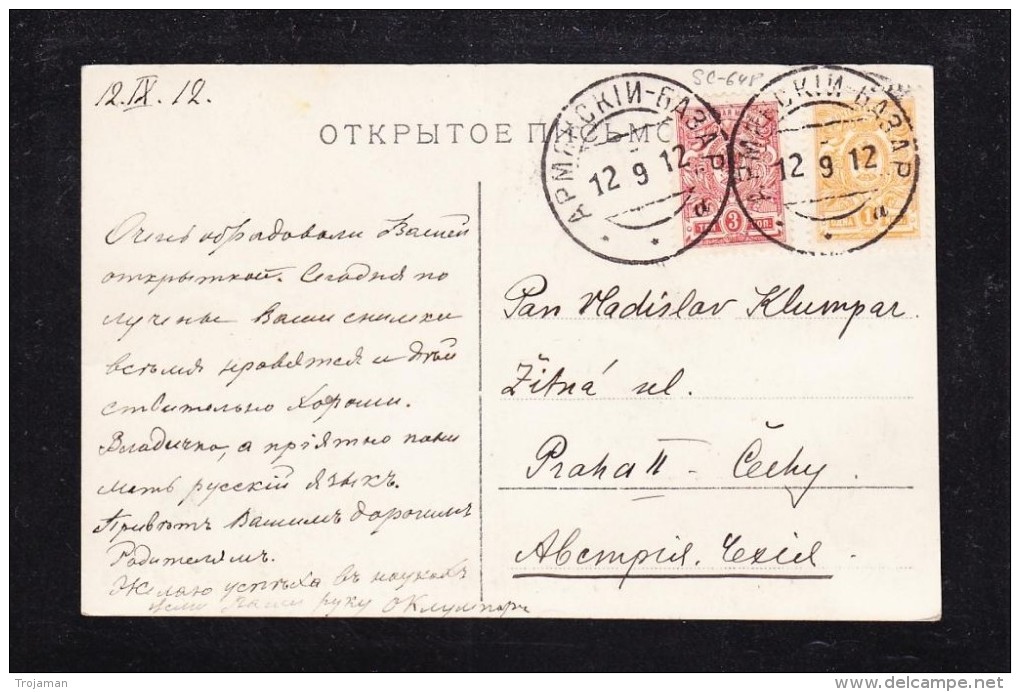 12.IX.12.
SC-64P
ОТКРЫТОЕ ПИСЬМО
АРМЯНСКІЙ-БАЗАР
12 9 12
а
3
АРМЯНСКІЙ-БАЗАР
12 9 12
а
1
Очень обрадовали Вашей
открыткой. Сегодня по
лучены Ваши снимки
всѣмъ нравятся и дѣй
ствительно хороши.
Владичка, а пріятно пони
мать русскій языкъ.
Привѣтъ Вашимъ дорогимъ
Родителямъ.
Желаю успѣха въ наукахъ
руку О Клумпаръ
Pan Vladislav Klumpar.
Žitná ul.
Praha II – Čechy
Австрія. Чехія.
Trojaman
delcampe.net